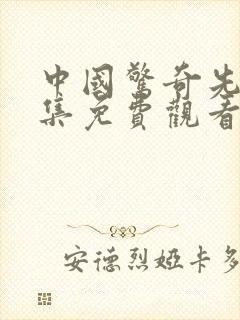 中國驚奇先
集免費觀看
安德烈婭卡多